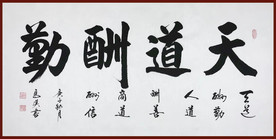 天道酬勤
天道
酬勤
人道
酬善
商道
酬信
庚子秋月
书